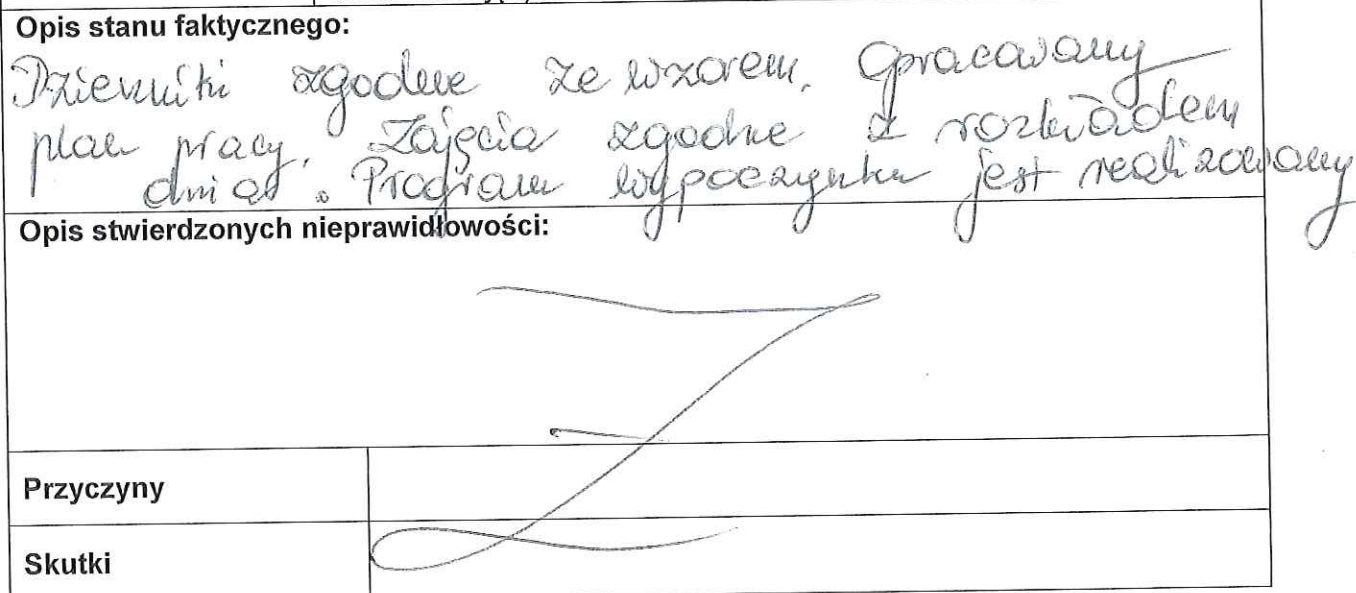 Opis stanu faktycznego:
Dzienniki zgodne ze wzorem. Opracowany
plan pracy. Zajęcia zgodne z rozkładem
dnia. Program wypoczynku jest realizowany
Opis stwierdzonych nieprawidłowości:
Przyczyny
Skutki